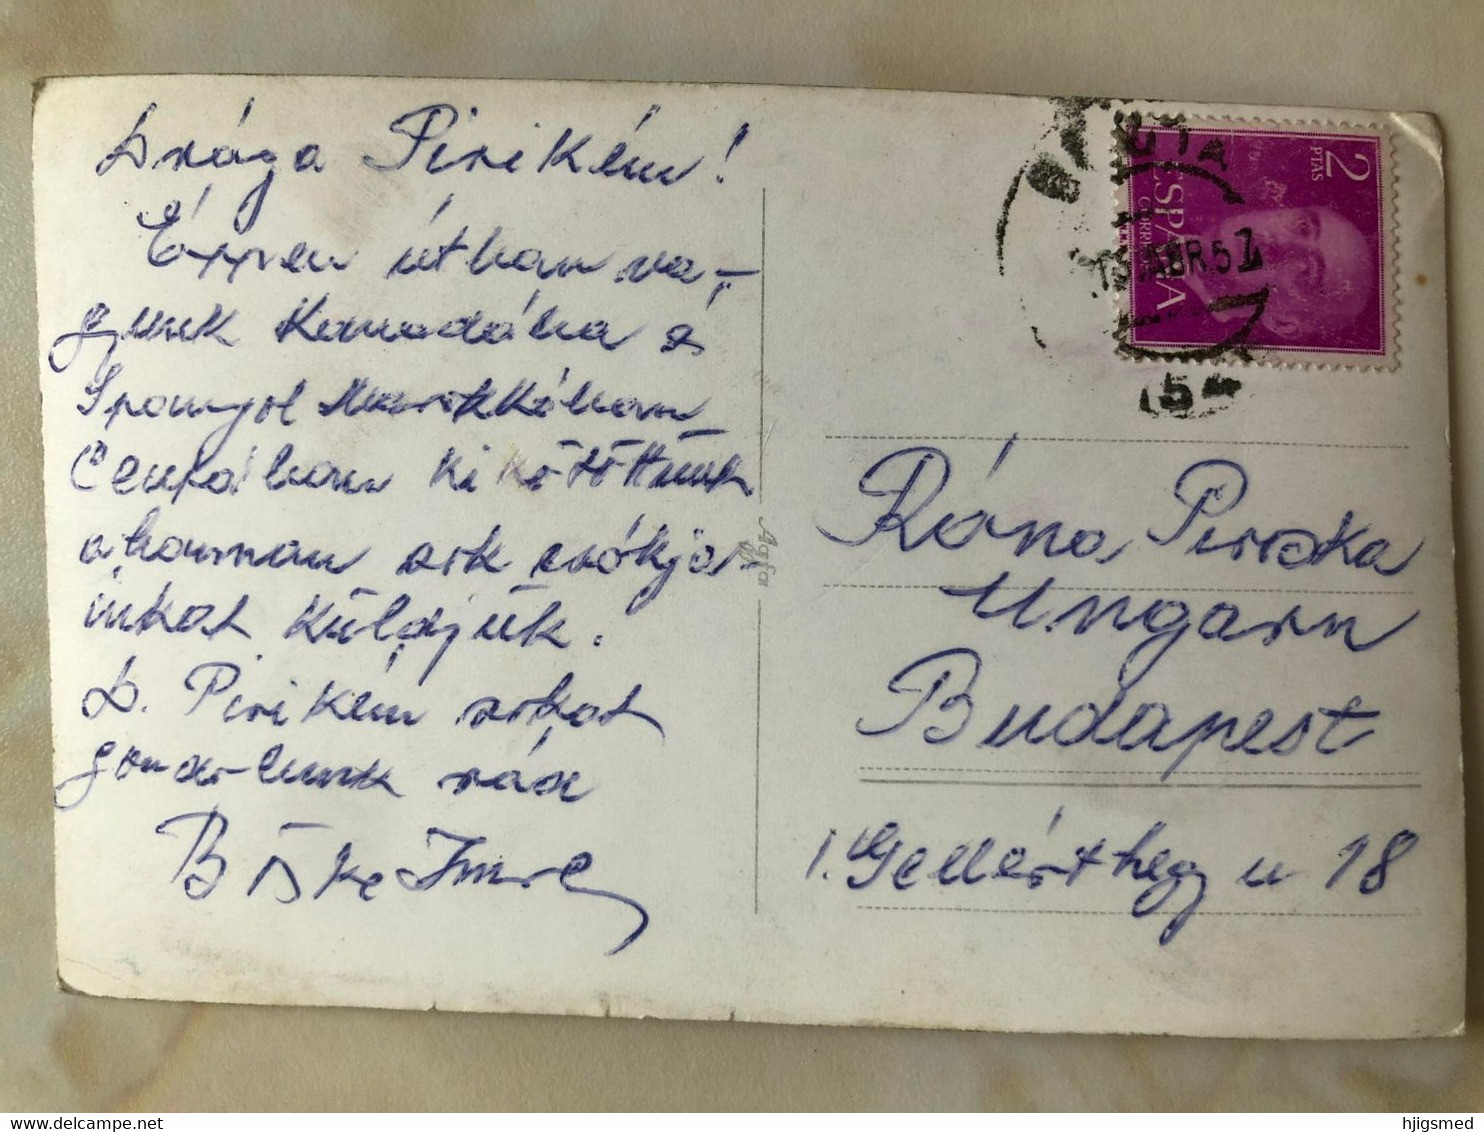 Drága Pirikém!
Éppen útban va-
gyunk Kanadába s
Spanyol Marokkóban
Ceutában kikötöttünk
ahonnan sok csókja-
inkat küldjük.
D. Pirikém sokat
gondolunk rád
Böske Imre
Agfa
CEUTA
13 ABR 57
ESPAÑA
CORREOS
2
PTAS
Róna Piroska
Ungarn
Budapest
I. Gellérthegy u 18
delcampe.net
hjlgsmed